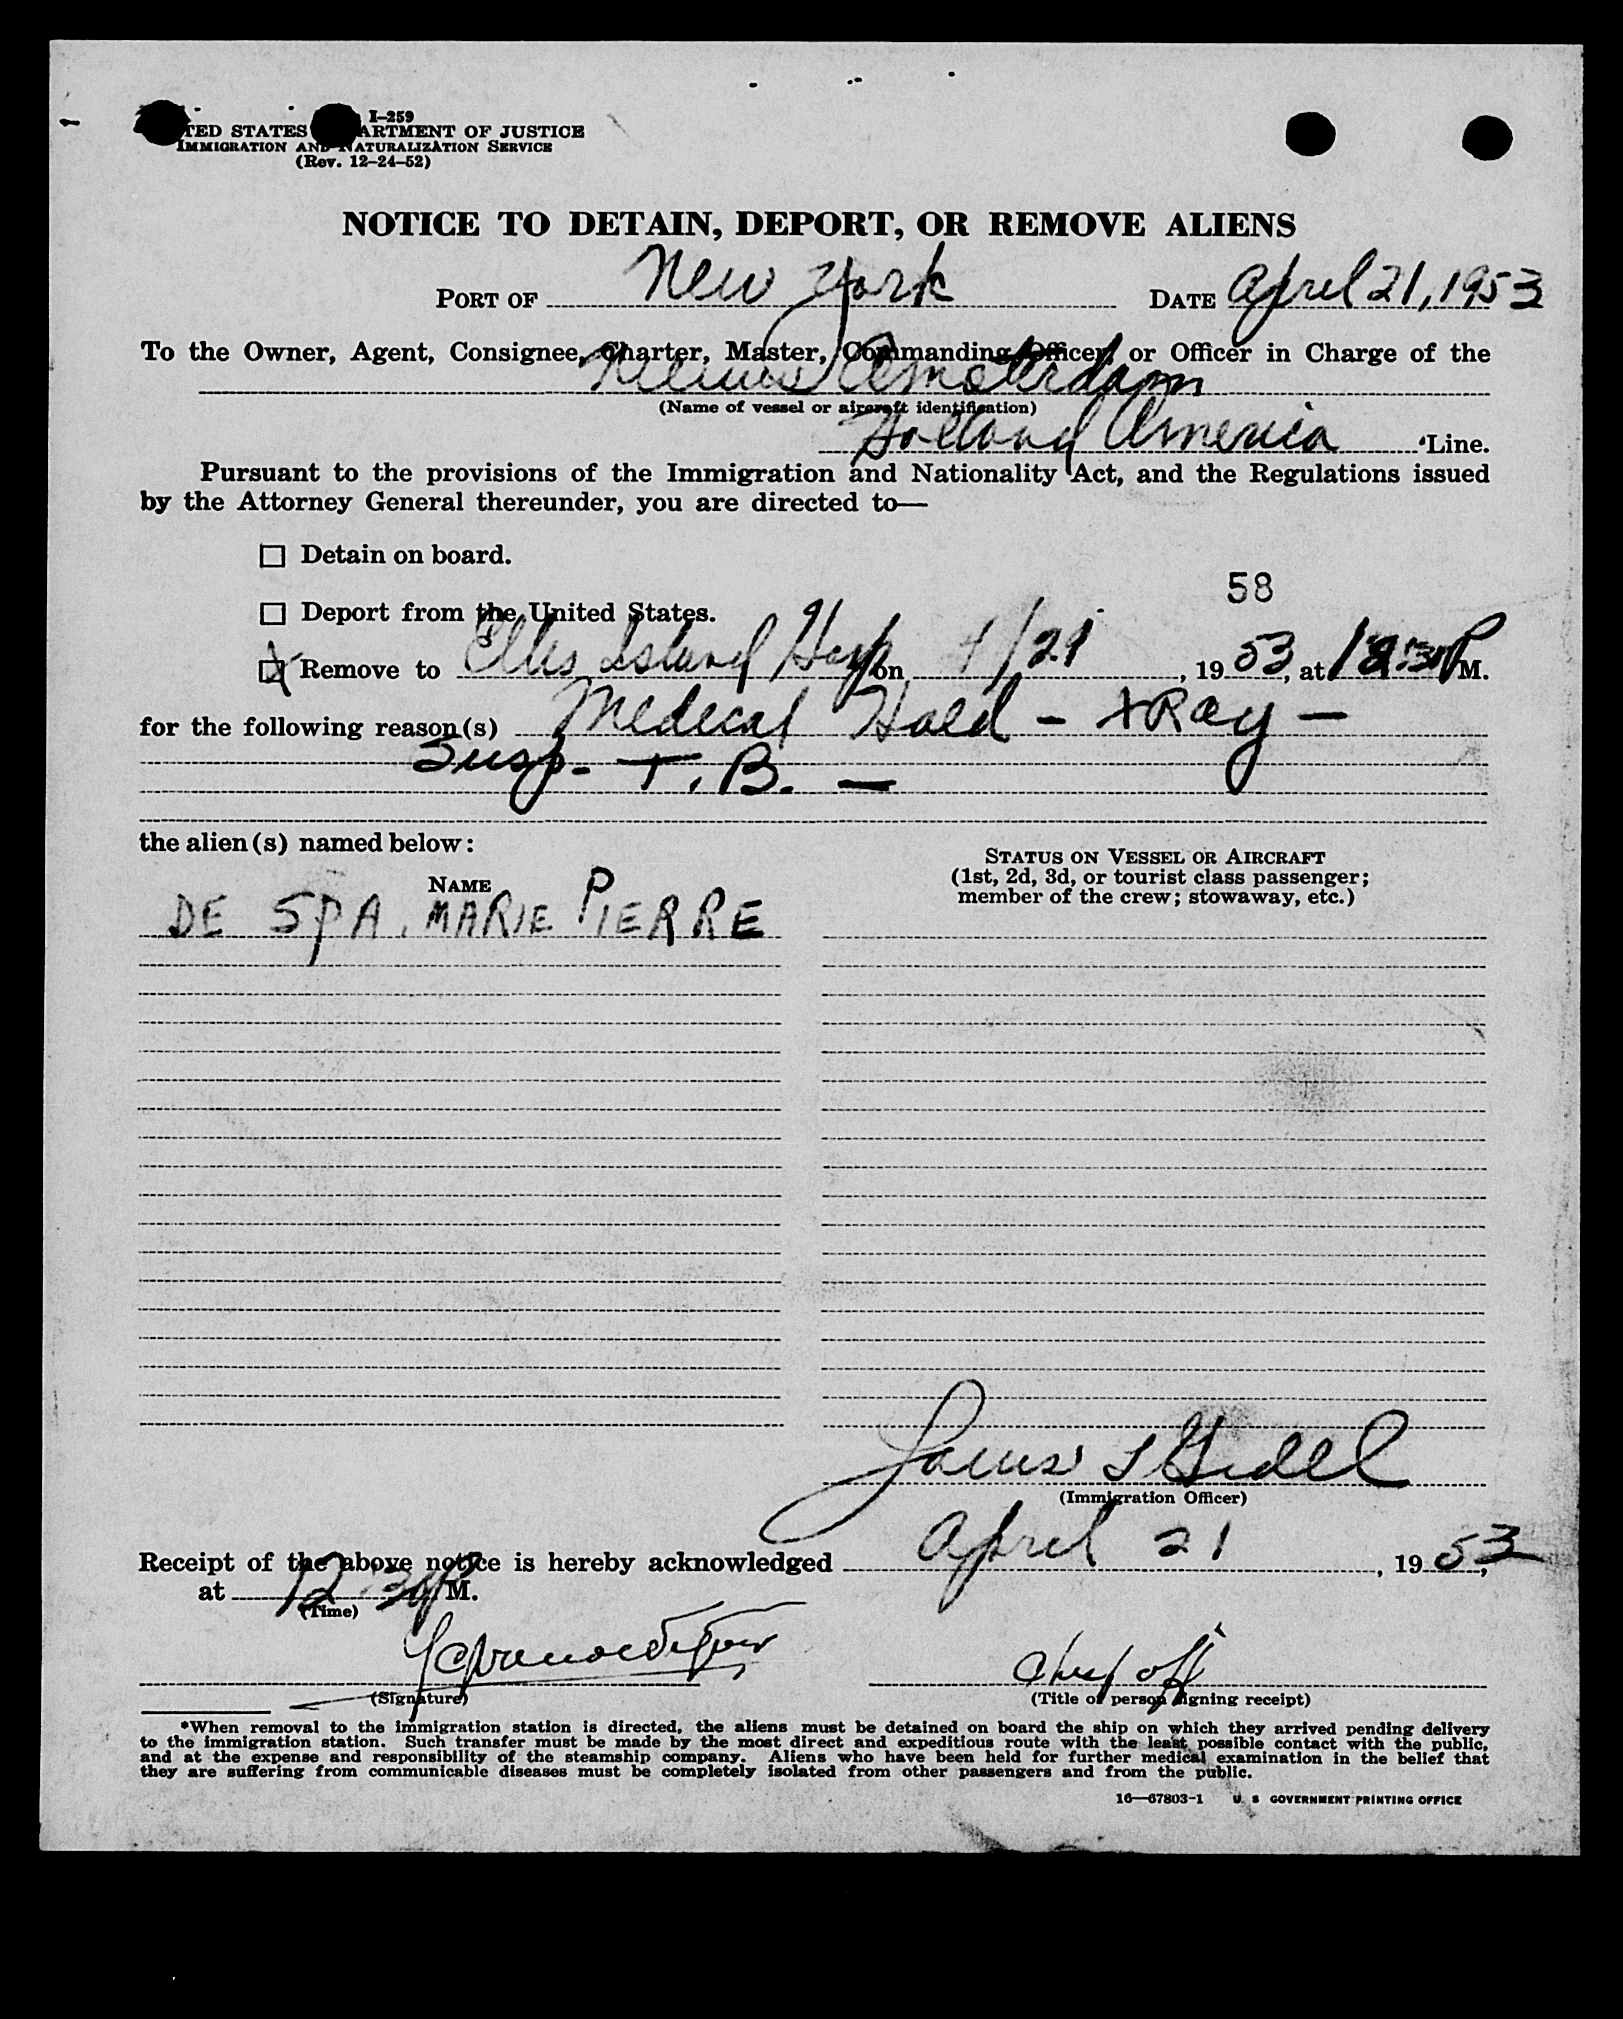 I-259
TED STATES ARTMENT OF JUSTICE
IMMIGRATION AND NATURALIZATION SERVICE
(Rev. 12-24-52)
NOTICE TO DETAIN, DEPORT, OR REMOVE ALIENS
PORT OF New York DATE April 21, 1953
To the Owner, Agent, Consignee, Charter, Master, Commanding Officer, or Officer in Charge of the
Nieuw Amsterdam
(Name of vessel or aircraft identification)
Holland America Line.
Pursuant to the provisions of the Immigration and Nationality Act, and the Regulations issued
by the Attorney General thereunder, you are directed to—
☐ Detain on board.
58
☐ Deport from the United States.
☒ Remove to Ellis Island Hosp on 4/21, 1953, at 12:30 P M.
for the following reason(s) Medical Hold - XRay -
Susp. T.B. -
the alien(s) named below:
NAME
STATUS ON VESSEL OR AIRCRAFT
(1st, 2d, 3d, or tourist class passenger;
member of the crew; stowaway, etc.)
DE SPA, MARIE PIERRE
(Immigration Officer)
Receipt of the above notice is hereby acknowledged April 21, 1953,
at 12:30 P M.
(Time)
Chief off
(Signature) (Title of person signing receipt)
*When removal to the immigration station is directed, the aliens must be detained on board the ship on which they arrived pending delivery
to the immigration station. Such transfer must be made by the most direct and expeditious route with the least possible contact with the public,
and at the expense and responsibility of the steamship company. Aliens who have been held for further medical examination in the belief that
they are suffering from communicable diseases must be completely isolated from other passengers and from the public.
16—67803-1 U. S. GOVERNMENT PRINTING OFFICE